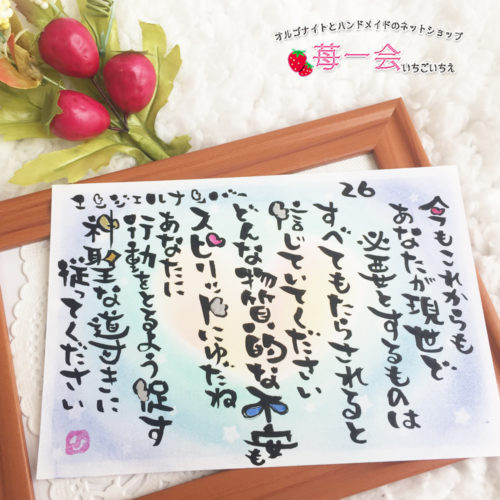 オルゴナイトとハンドメイドのネットショップ
苺一会
いちごいちえ
エンジェルナンバー
26
今もこれからも
あなたが現世で
必要とするものは
すべてもたらされると
信じていてください
どんな物質的な不安も
スピリットにゆだね
あなたに
行動をとるよう促す
神聖な導きに
従ってください